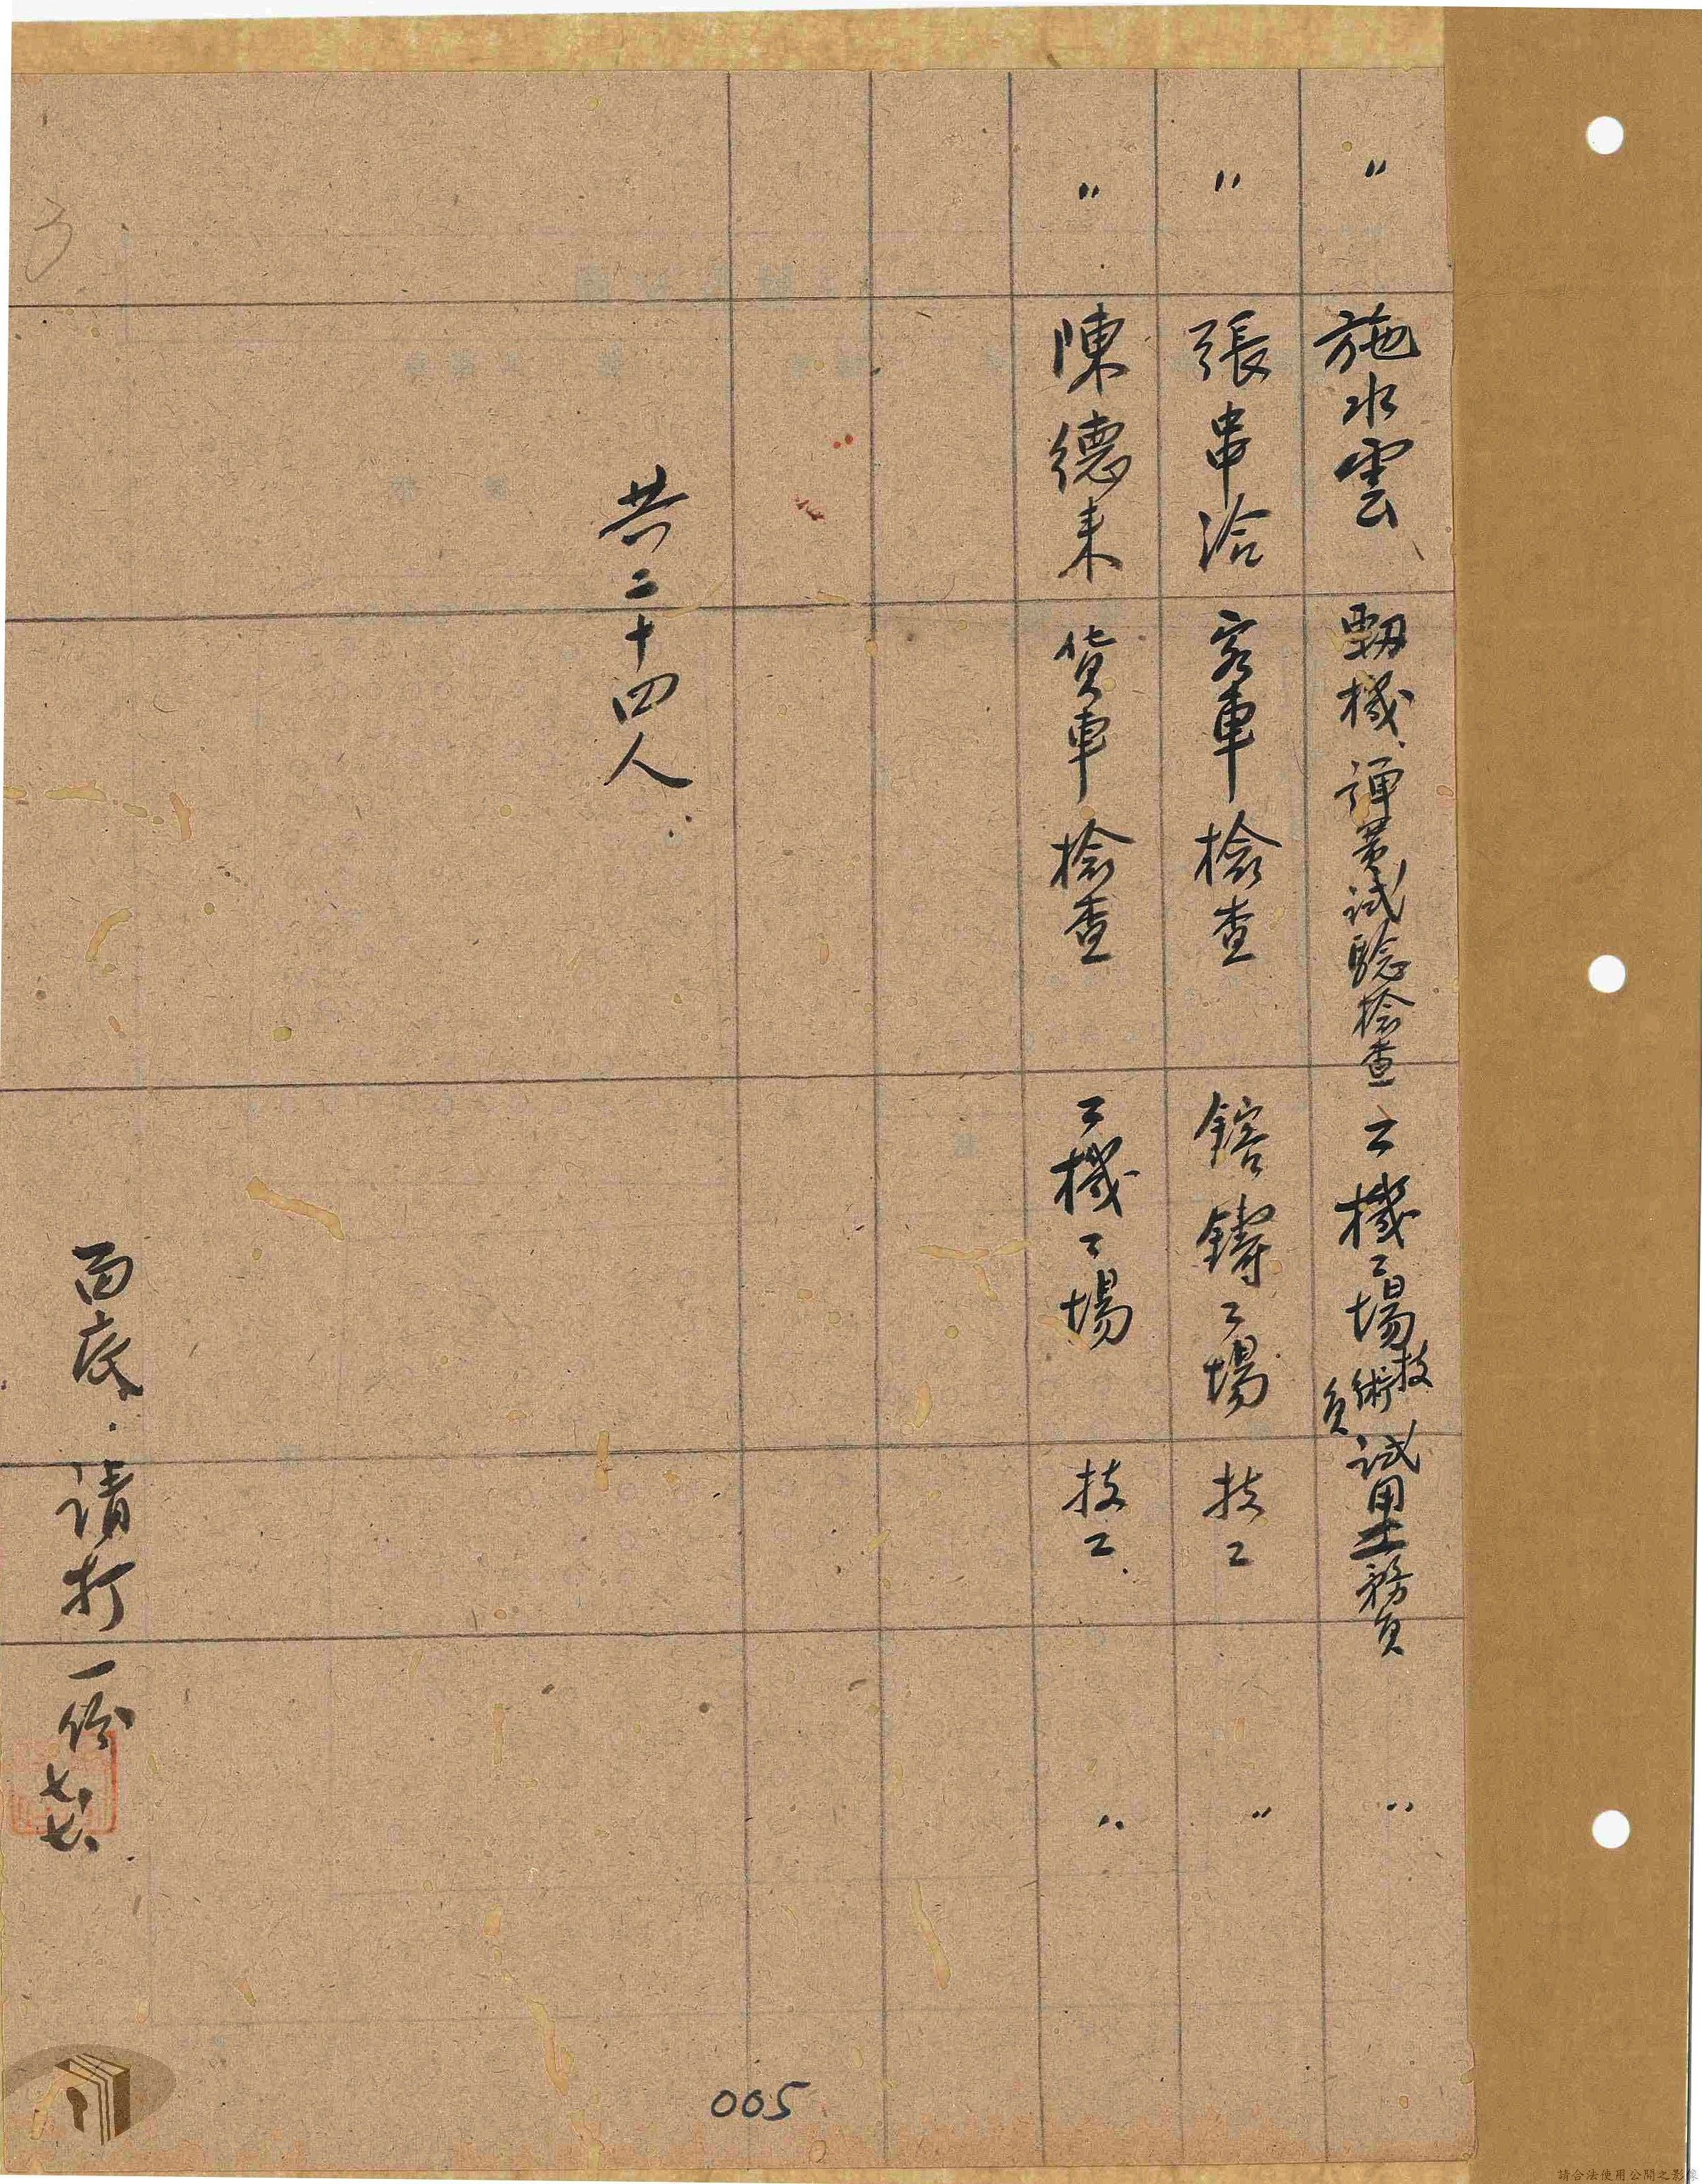 〃 施水雲 動機、彈簧試驗檢查 工機工場 技術員 試用工務員 〃
〃 張串洽 客車檢查 鎔鑄工場 技工 〃
〃 陳德来 貨車檢查 工機工場 技工 〃
共二十四人
面底.請打一份 七.七.
005
請合法使用公開之影